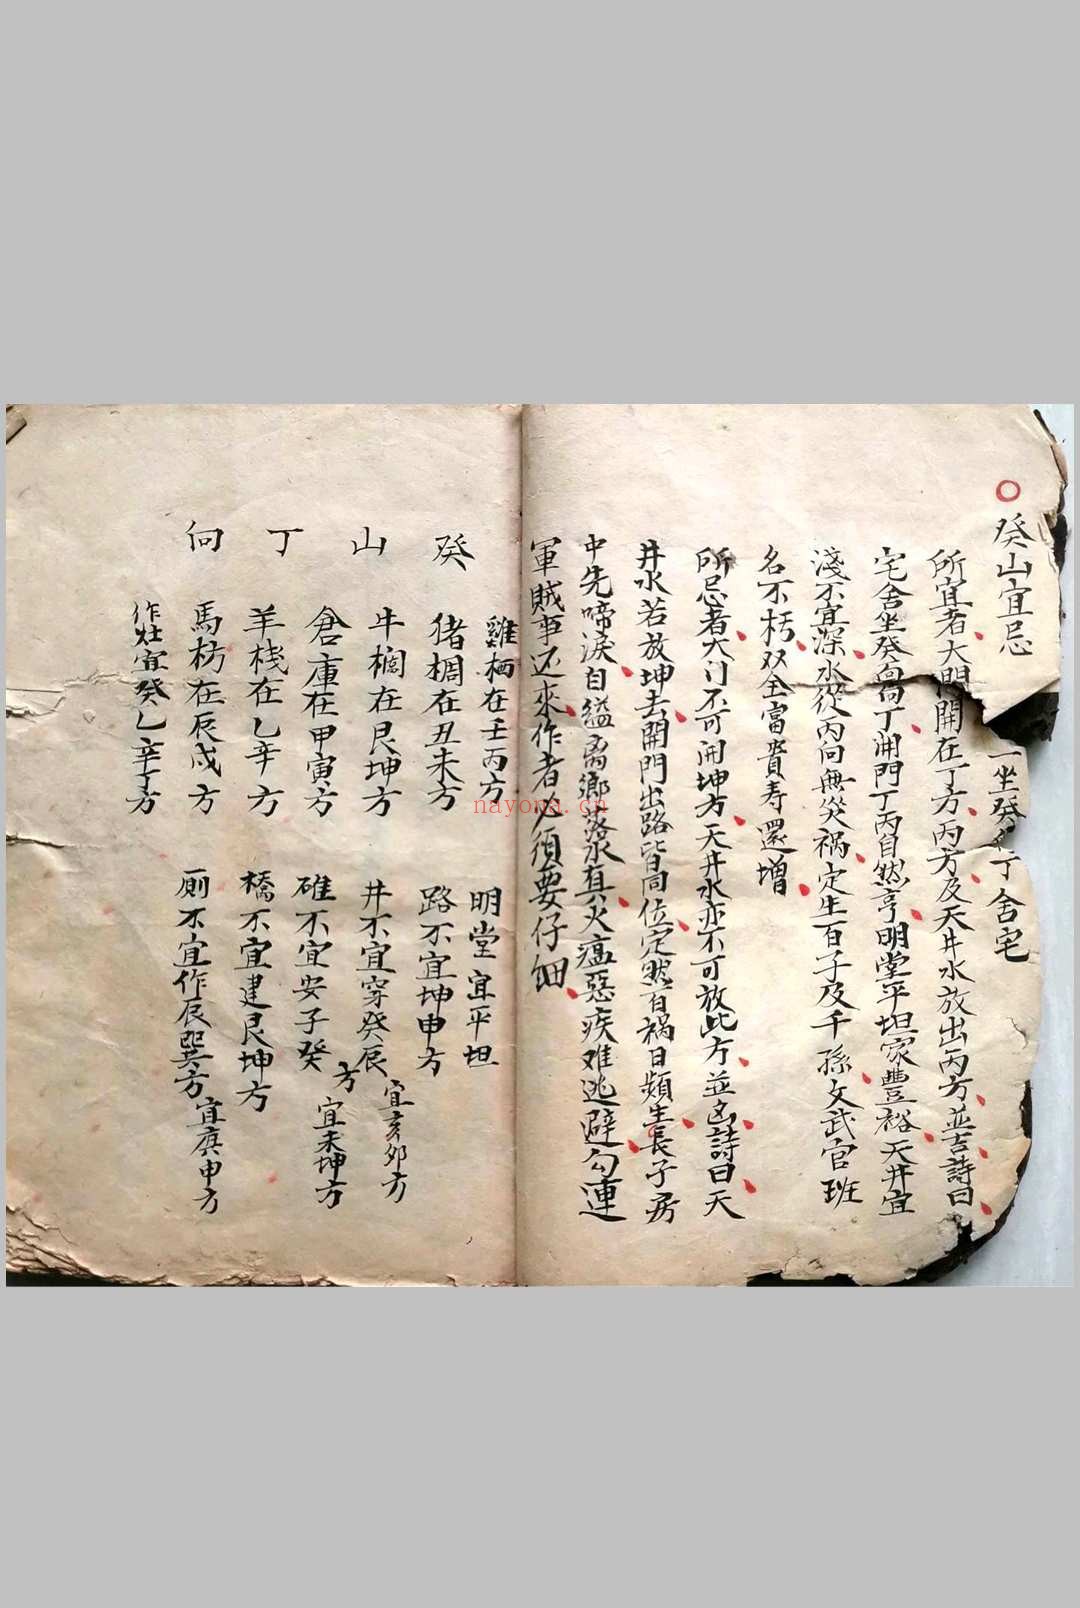 癸山宜忌
一坐癸行丁舍宅
所宜者大門開在丁方丙方及天井水放出丙方並吉詩曰
宅舍坐癸向向丁開門丁丙自然亨明堂平坦家豊裕天井宜
淺不宜深水從丙向無災禍定生百子及千孫文武官班
名不朽双全富貴寿還增
所忌者大门不可開坤方天井水亦不可放此方並凶詩曰天
井水若放坤去開門出路皆同位定然百禍日頻生長子房
中先啼淚自縊离鄉落水真火瘟惡疾难逃避勾連
軍賊事还來作者必須要仔細
癸山丁向
雞栖在壬丙方
猪椆在丑未方
牛欄在艮坤方
倉庫在甲寅方
羊棧在乙辛方
馬枋在辰戌方
作灶宜癸乙辛丁方
明堂宜平坦
路不宜坤申方
井不宜穿癸辰方宜亥卯方
碓不宜安子癸方宜未坤方
橋不宜建艮坤方
厠不宜作辰巽方宜庚申方
nayona.cn